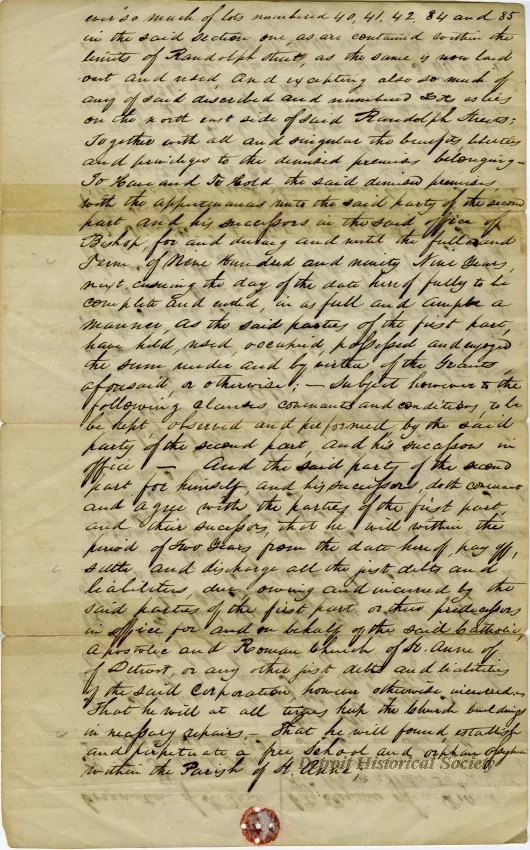 ever so much of lots numbered 40, 41, 42, 84 and 85
in the said section one, as are contained within the
limits of Randolph Street, as the same is now laid
out and used, and excepting also so much of
any of said described and numbered Lots as lies
on the north east side of said Randolph Street:
Together with all and singular the benefits, liberties
and privileges to the demised premises belonging —
To Have and To Hold the said demised premises,
with the appurtenances unto the said party of the second
part, and his successors in the said office of
Bishop, for and during and until the full end
Term of Nine Hundred and ninety Nine Years,
next, ensuing the day of the date hereof fully to be
complete and ended, in as full and ample a
manner, as the said parties of the first part,
have held, used, occupied, possessed and enjoyed
the same under and by virtue of the Grants
aforesaid, or otherwise; — Subject however to the
following clauses covenants and conditions, to be
be kept, observed and performed by the said
party of the second part, and his successors in
office — And the said party of the second
part for himself and his successors, doth covenant
and agree with the parties of the first part,
and their sucessors, that he will within the
period of Two Years from the date hereof, pay off,
settle and discharge all the just debts and
liabilities, due, owing and incurred by the
said parties of the first part or their predecessors
in office for and on behalf of the said Catholic,
Apostolic and Roman Church of St. Anne of
of Detroit, or any other just debts and liabilities
of the said Corporation, however otherwise incurred. —
That he will at all times keep the Church buildings
in necessary repairs, — That he will found, establish
and perpetuate a free School and orphan Asylum
within the Parish of St. Anne;
Detroit Historical Society